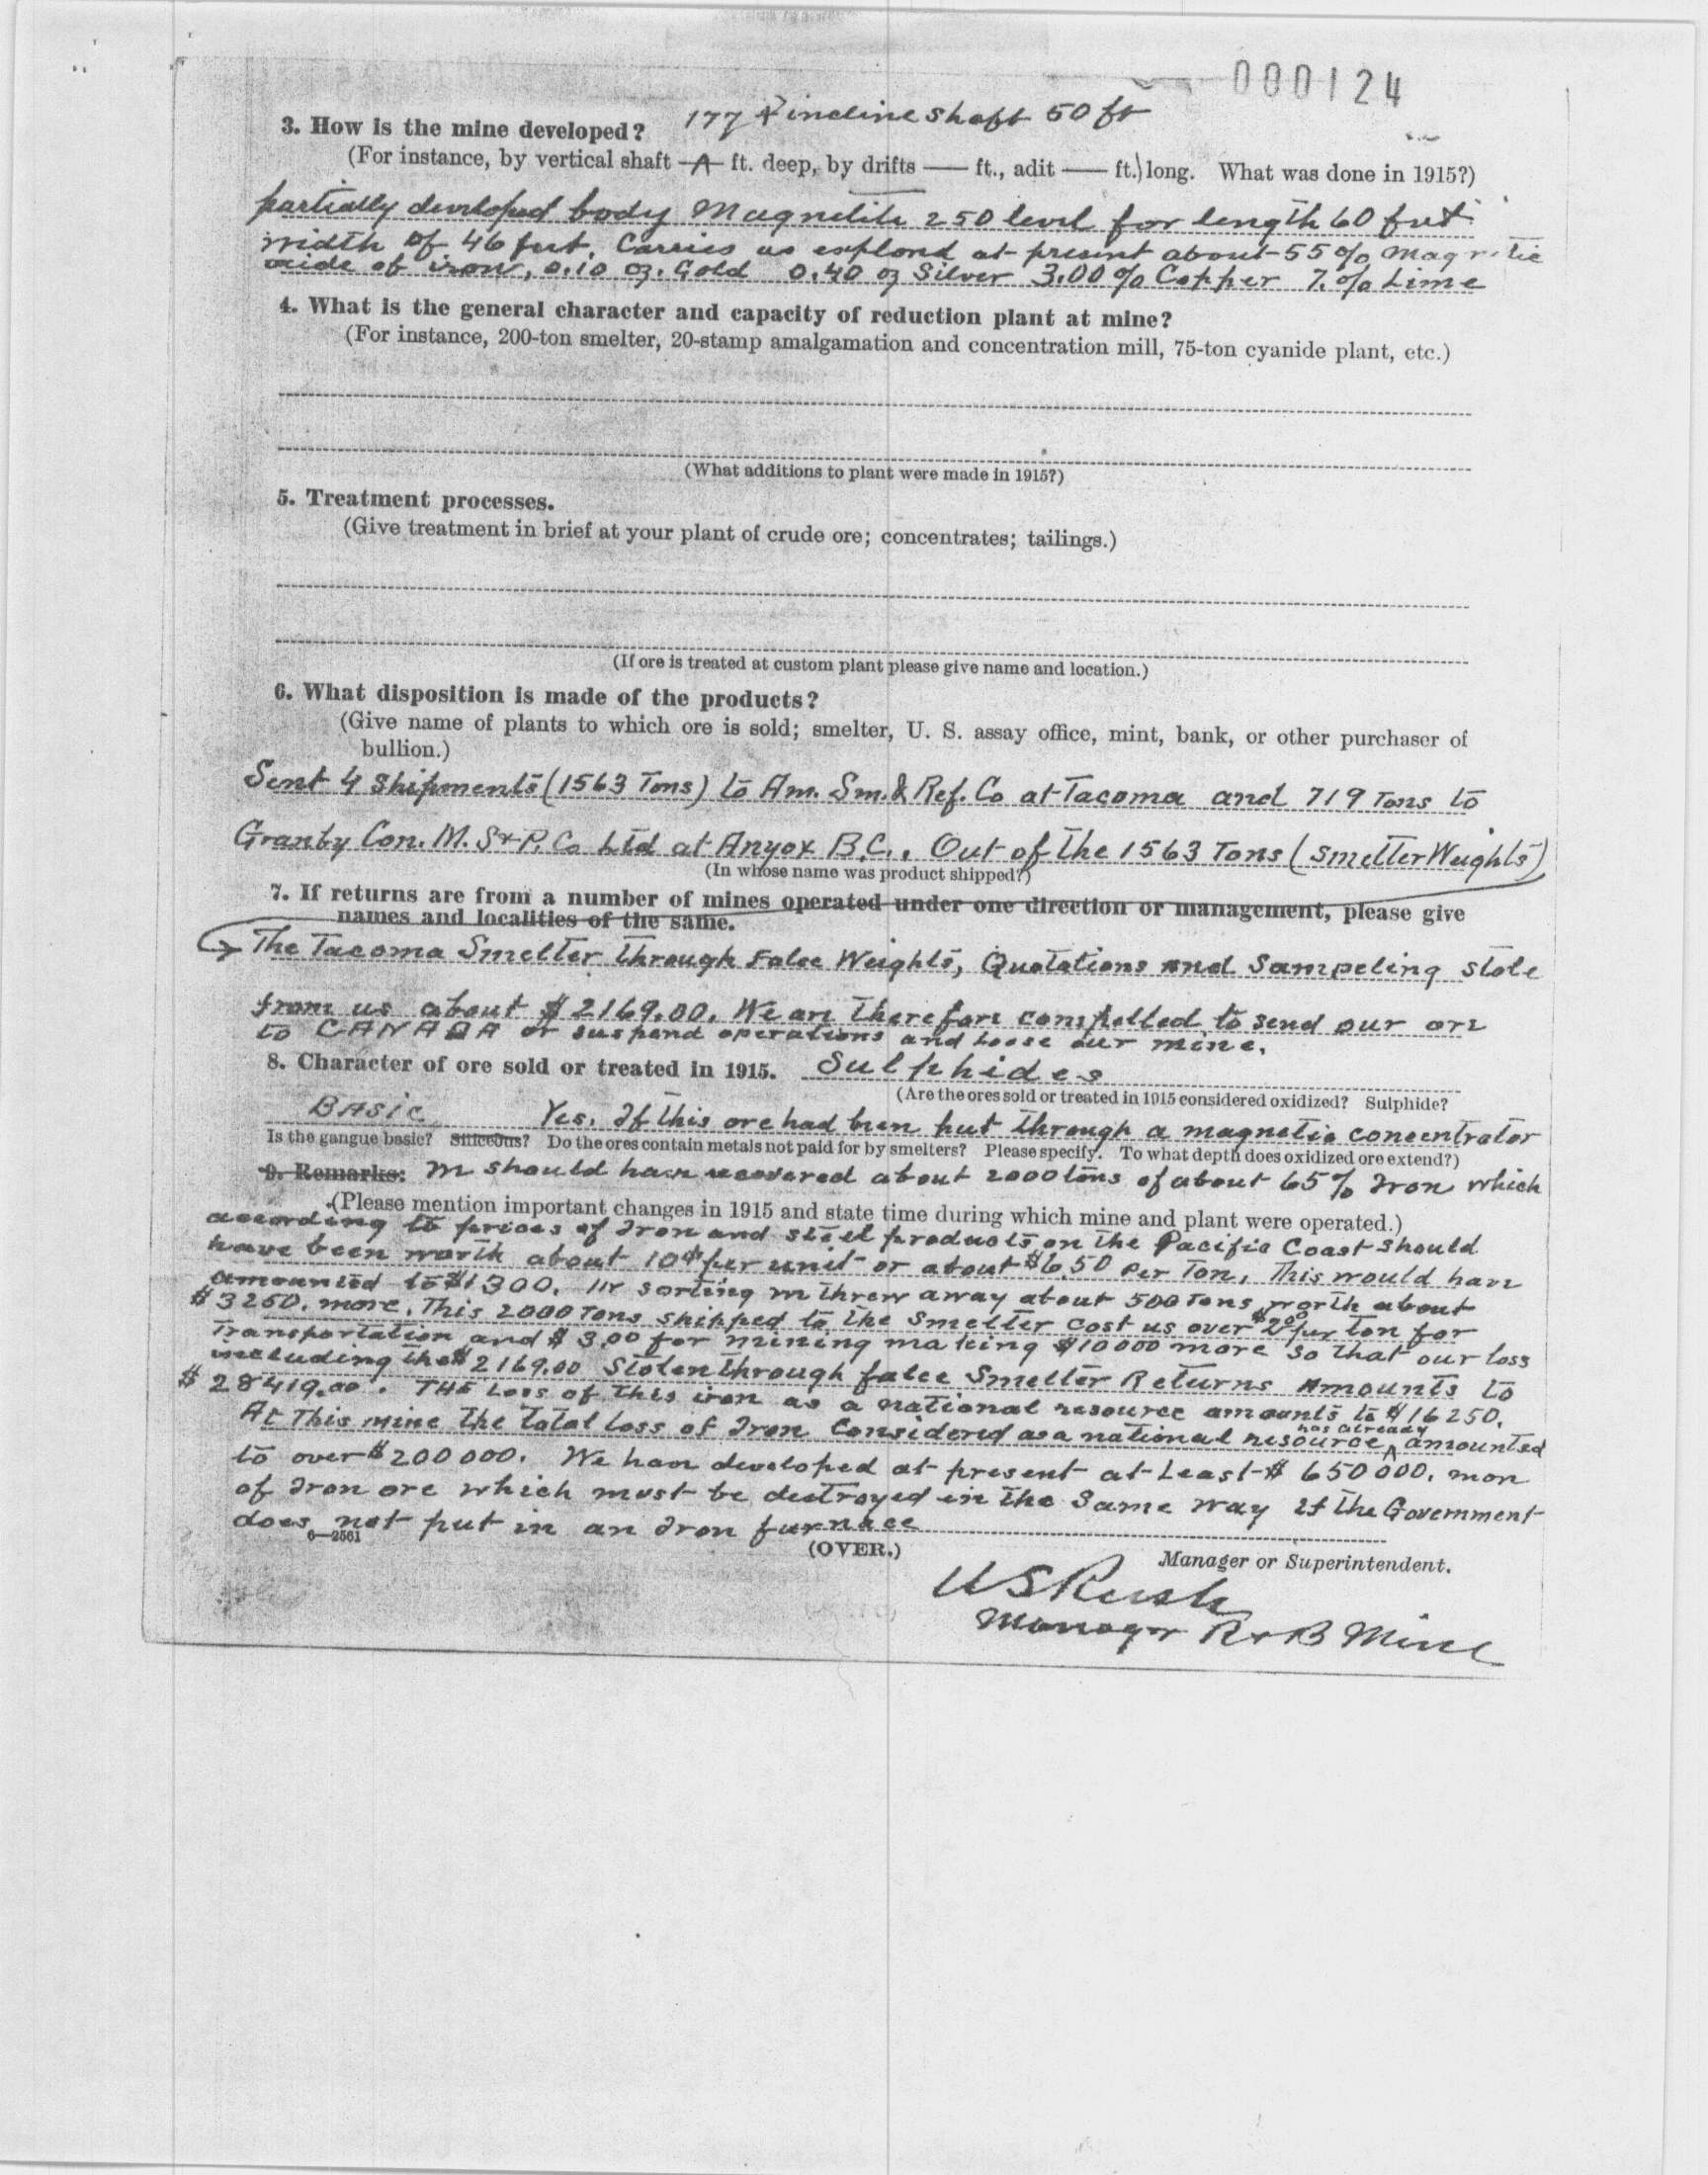 000124
3. How is the mine developed? 177 & incline shaft 50 ft
(For instance, by vertical shaft —— ft. deep, by drifts —— ft., adit —— ft.) long. What was done in 1915?)
partially developed body Magnetite 250 level for length 60 feet
width of 46 feet. Carries as explored at present about 55% Magnetic
oxide of iron, 0.10 oz. Gold 0.40 oz Silver 3.00% Copper 7.% Lime
4. What is the general character and capacity of reduction plant at mine?
(For instance, 200-ton smelter, 20-stamp amalgamation and concentration mill, 75-ton cyanide plant, etc.)
(What additions to plant were made in 1915?)
5. Treatment processes.
(Give treatment in brief at your plant of crude ore; concentrates; tailings.)
(If ore is treated at custom plant please give name and location.)
6. What disposition is made of the products?
(Give name of plants to which ore is sold; smelter, U. S. assay office, mint, bank, or other purchaser of
bullion.)
Sent 4 Shipments (1563 Tons) to Am. Sm. & Ref. Co at Tacoma and 719 Tons to
Granby Con. M. S & P. Co Ltd at Anyox B.C.. Out of the 1563 Tons (Smelter Weights)
(In whose name was product shipped?)
7. If returns are from a number of mines operated under one direction or management, please give
names and localities of the same.
The Tacoma Smelter through False Weights, Quotations and Sampeling stole
from us about $2169.00. We are therefore compelled to send our ore
to CANADA or suspend operations and loose our mine.
8. Character of ore sold or treated in 1915. Sulphides
(Are the ores sold or treated in 1915 considered oxidized? Sulphide?
BASic Yes. If this ore had been put through a magnetic concentrator
Is the gangue basic? Siliceous? Do the ores contain metals not paid for by smelters? Please specify. To what depth does oxidized ore extend?)
9. Remarks: we should have recovered about 2000 tons of about 65% Iron which
(Please mention important changes in 1915 and state time during which mine and plant were operated.)
according to prices of Iron and steel products on the Pacific Coast should
have been worth about 10¢ per unit or about $6.50 per Ton, This would have
amounted to $1300. In sorting we threw away about 500 Tons worth about
$3250. more. This 2000 Tons shipped to the Smelter cost us over $2.00 per ton for
Transportation and $3.00 for mining making $10000 more so that our loss
including the $2169.00 Stolen through false Smelter Returns Amounts to
$28419.00. THE Loss of this iron as a national resource amounts to $16250.
At This mine the total loss of Iron Considered as a national resource has already amounted
to over $200000. We have developed at present at Least $650000. more
of Iron ore which must be destroyed in the same way if the Government
does not put in an Iron furnace
6—2561
(OVER.)
Manager or Superintendent.
U S Rush
Manager R & B Mine